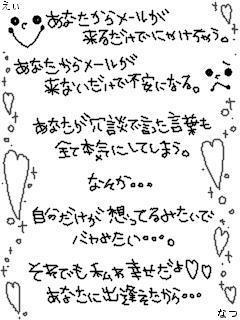 えい
あなたからメールが
来るだけでにやけちゃう。
あなたからメールが
来ないだけで不安になる。
あなたが冗談で言った言葉も
全て本気にしてしまう。
なんか・・・
自分だけが想ってるみたいで
バカみたい・・・。
それでも私ゎ幸せだよ♡♡
あなたに出逢えたから・・・
なつ